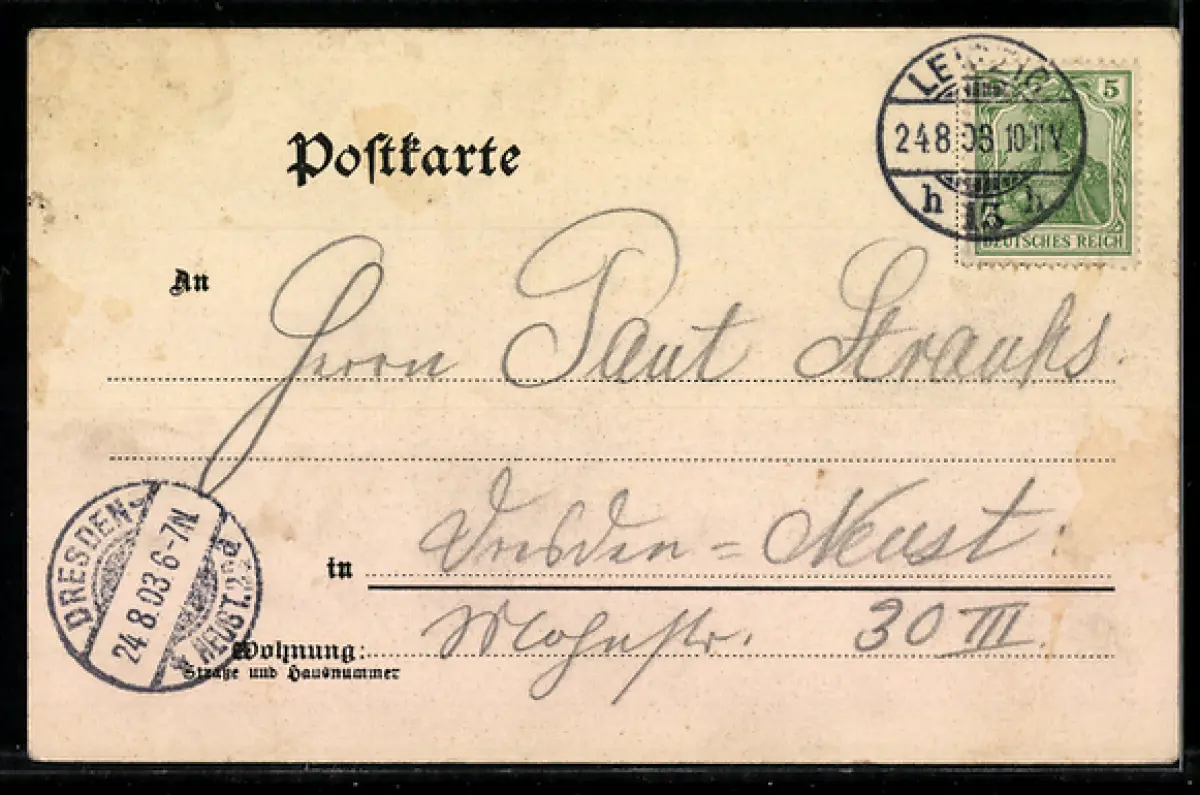 LEIPZIG
24.8.03.10-11V
h 13 h
5
DEUTSCHES REICH
Postkarte
An
Herrn Paul Strauks.
in Dresden=Neust.
Wohnung: Mohnstr. 30 III.
Straße und Hausnummer
DRESDEN-
24.8.03.6-7N
NEUST.